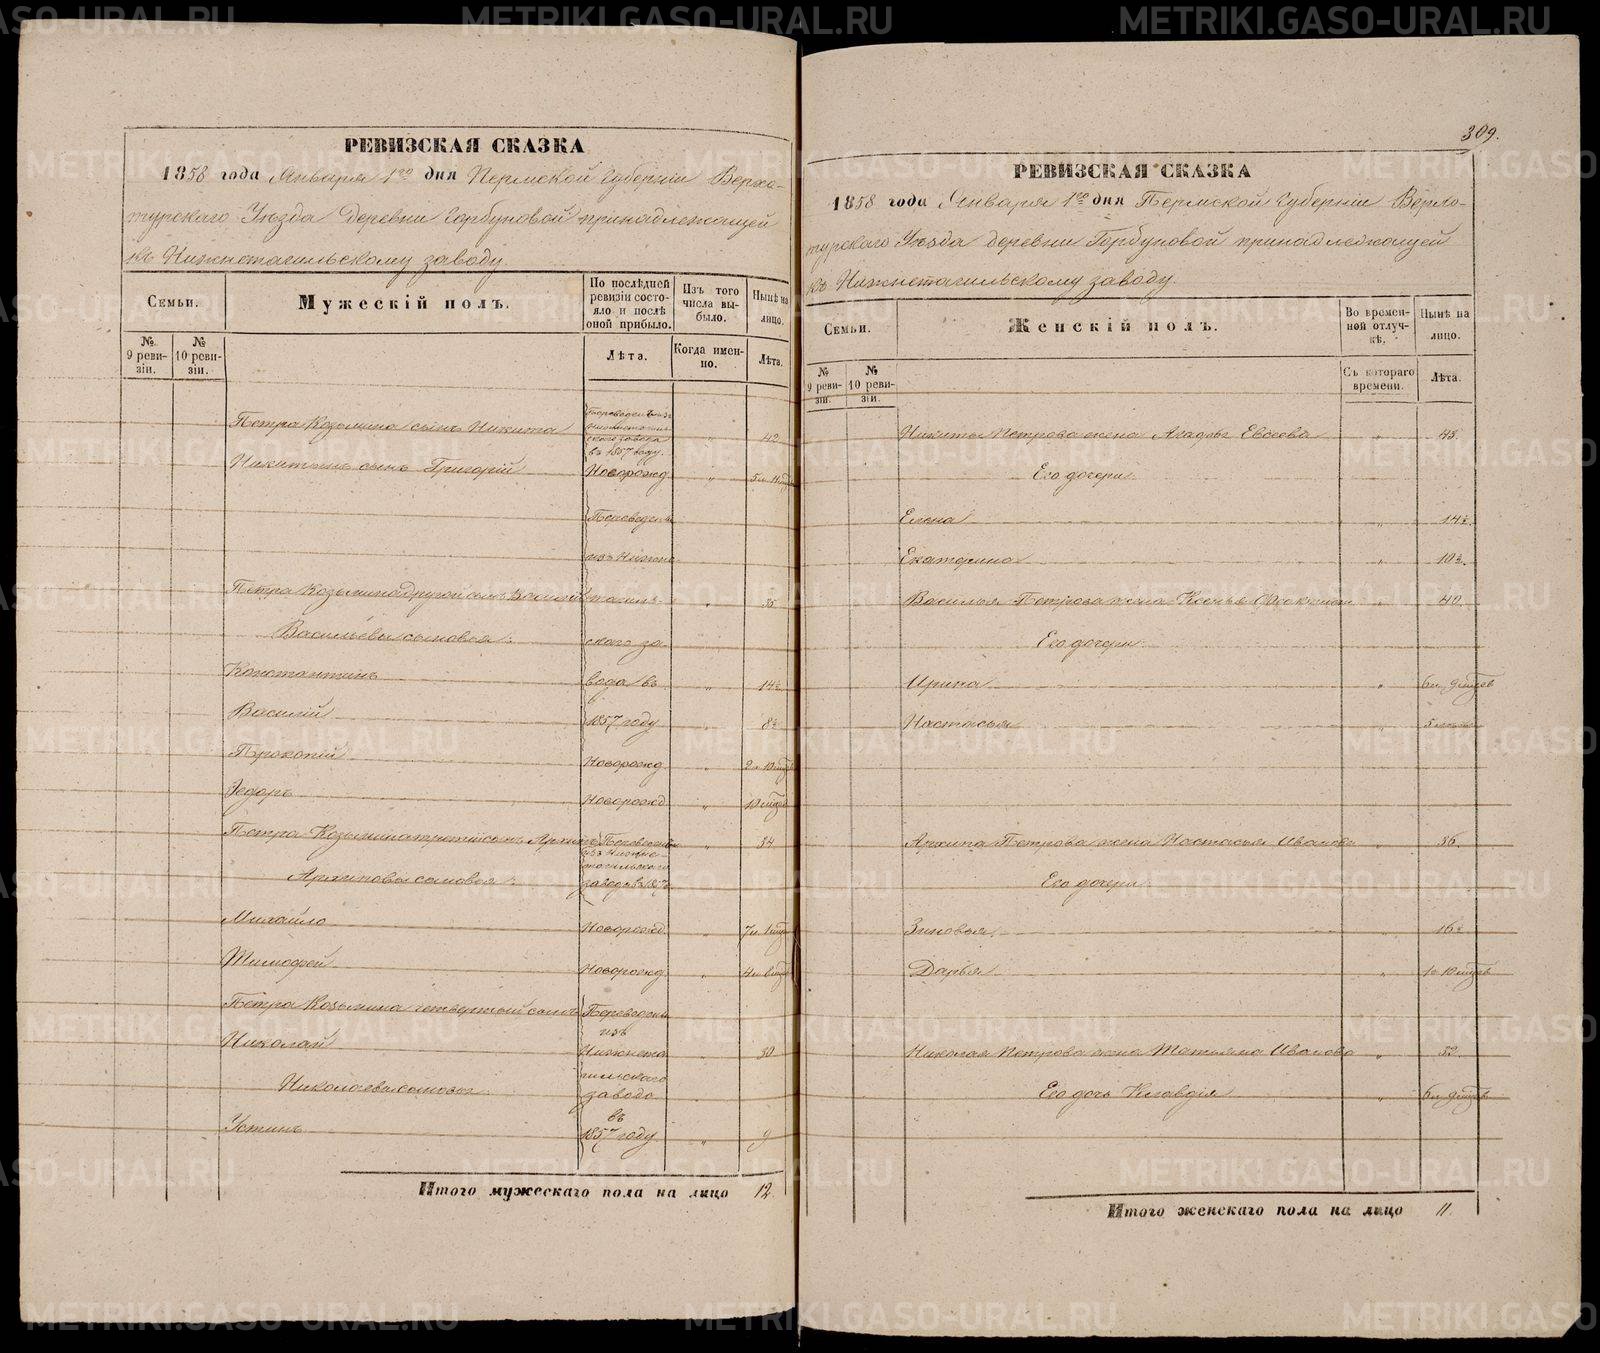 РЕВИЗСКАЯ СКАЗКА
1858 года Января 1го дня Пермской Губернiи Верхо-
турскаго Уѣзда деревни Горбуновой принадлежащей
къ Нижнетагильскому заводу.
Семьи.
Мужескiй полъ.
По послѣдней ревизiи состояло и послѣ оной прибыло.
Изъ того числа выбыло.
Нынѣ на лицо.
№ 9 ревизiи.
№ 10 ревизiи.
Лѣта.
Когда именно.
Лѣта.
Петра Козьмина сынъ Никита Переведенъ изъ Нижнетагильскаго завода въ 1857 году. „ 42
Никитинъ сынъ Григорiй Новорожд. „
Переведены
изъ Нижне
Петра Козьмина другой сынъ Василiй тагиль- „ 35
Васильевы сыновья: скаго за-
Константинъ вода въ „ 14½
Василiй 1857 году „ 8½
Прокопiй Новорожд „
Ѳедоръ Новорожд „
Петра Козьмина третiй сынъ Архипъ Переведенъ изъ Нижнетагильскаго завода въ 1857 „ 34
Архиповы сыновья:
Михайло Новорожд. „
Тимофей Новорожд „
Петра Козьмина четвертый сынъ Переведены
изъ
Николай Нижнета „ 30
гильскаго
Николаевы сыновья завода
въ
Устинъ 1857 году „ 9
Итого мужескаго пола на лицо 12.
309.
РЕВИЗСКАЯ СКАЗКА
1858 года Января 1го дня Пермской Губернiи Верхо-
турскаго Уѣзда деревни Горбуновой принадлежащей
къ Нижнетагильскому заводу.
Семьи.
Женскiй полъ.
Во временной отлучкѣ.
Нынѣ на лицо.
№ 9 ревизiи.
№ 10 ревизiи.
Съ котораго времени.
Лѣта.
Никиты Петрова жена Агафья Евсеева „ 43.
Его дочери:
Елена „ 14½.
Екатерина „ 10½.
Василья Петрова жена Ксенья „ 40.
Его дочери:
Ирина „
Настасья „
Архипа Петрова жена Настасья Иванова „ 36.
Его дочери:
Зиновья. „ 16½
Дарья „
Николая Петрова жена Татьяна Иванова „ 32.
Его дочь Клавдiя „
Итого женскаго пола на лицо 11.
METRIKI.GASO-URAL.RU